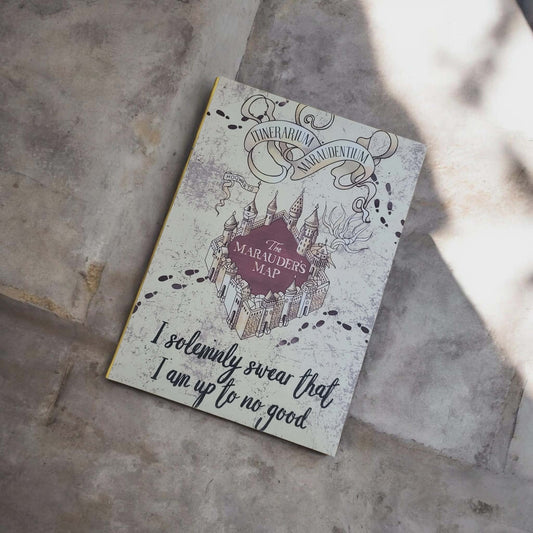 ITINERARIUM
MARAUDENTIUM
The
MARAUDER'S
MAP
I solemnly swear that
I am up to no good